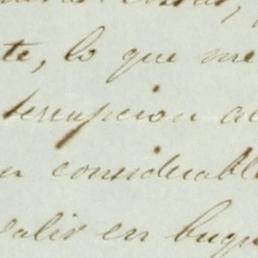 te, lo que me
terrupcion al
n considerabl
salir en buqu